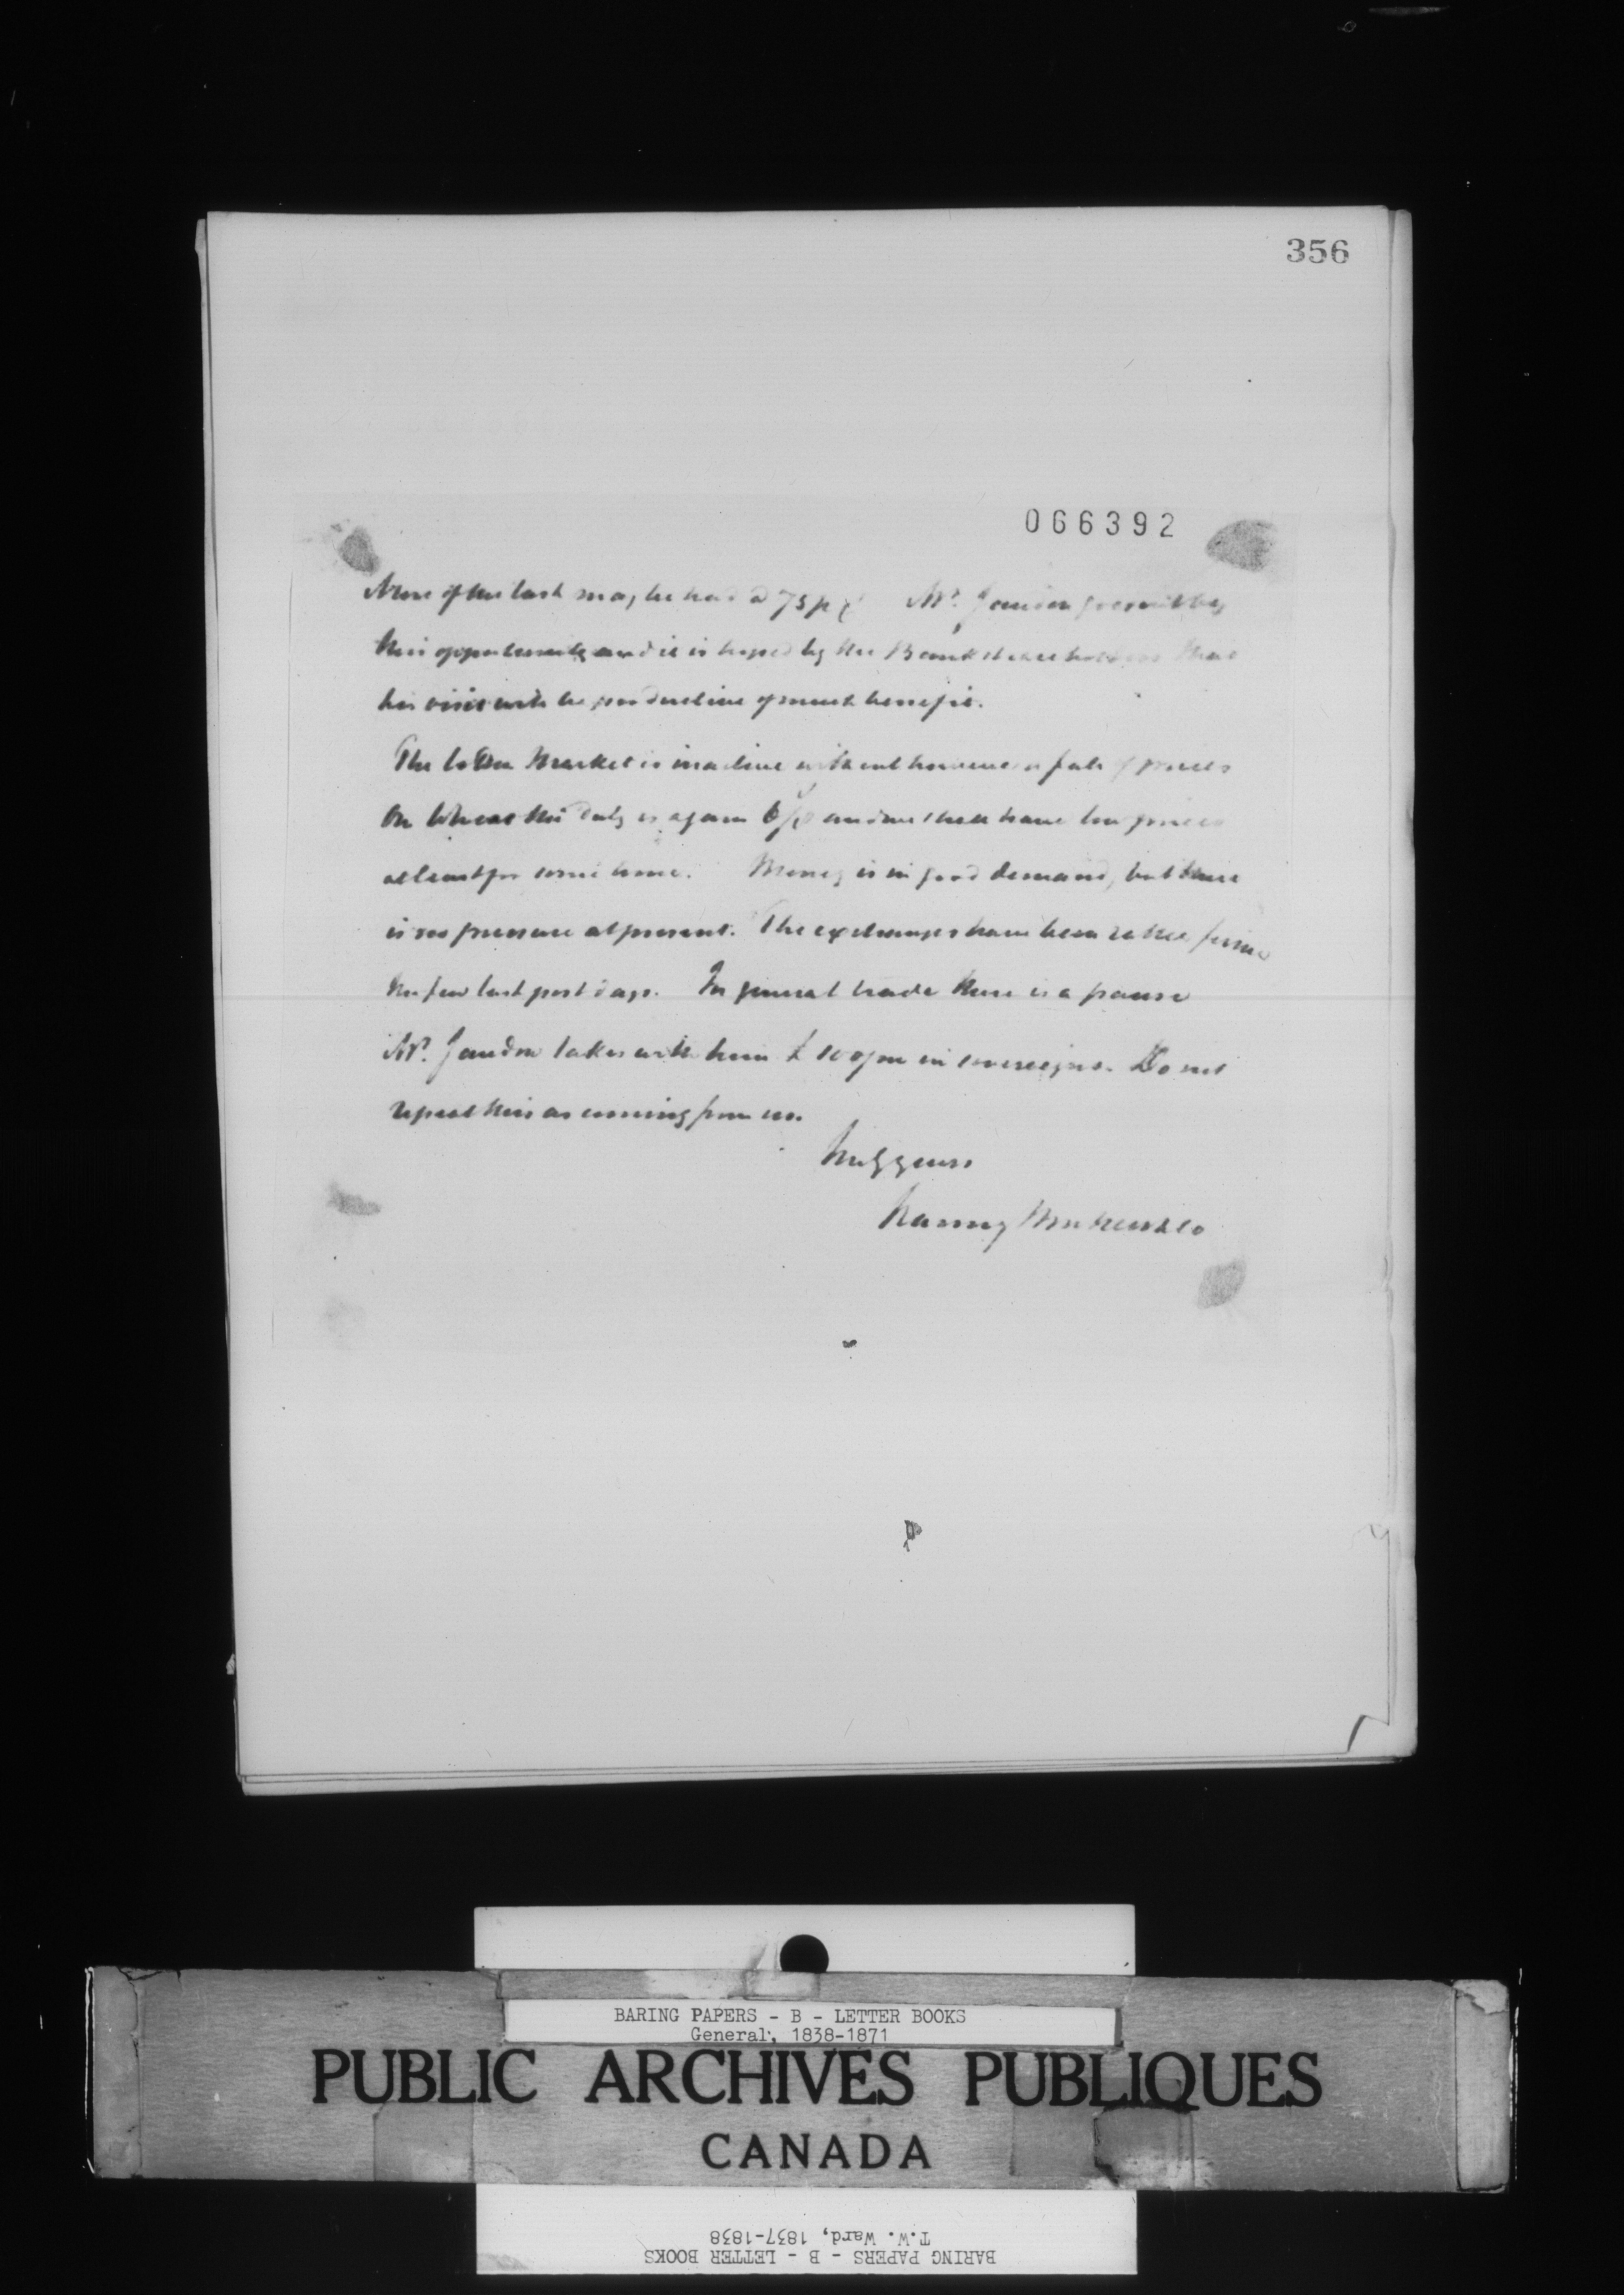 356
066392
More of the last may be had @ 75 p Mr. Jaudon goes out by
this opportunity and it is hoped by the Bank shareholders that
his visit will be productive of much benefit.
The Cotton Market is inactive without however a fall of prices
On Wheat the duty is again and we shall have low prices
at least for some time. Money is in good demand, but there
is no pressure at present. The exchanges have been rather firmer
the few last post days. In general trade there is a pause
Mr. Jaudon takes with him £ 100/m in sovereigns. Do not
repeat this as coming from us.
Baring Brothers & Co
BARING PAPERS - B - LETTER BOOKS
General, 1838-1871
PUBLIC ARCHIVES PUBLIQUES
CANADA
T.W. Ward, 1837-1838
BARING PAPERS - B - LETTER BOOKS